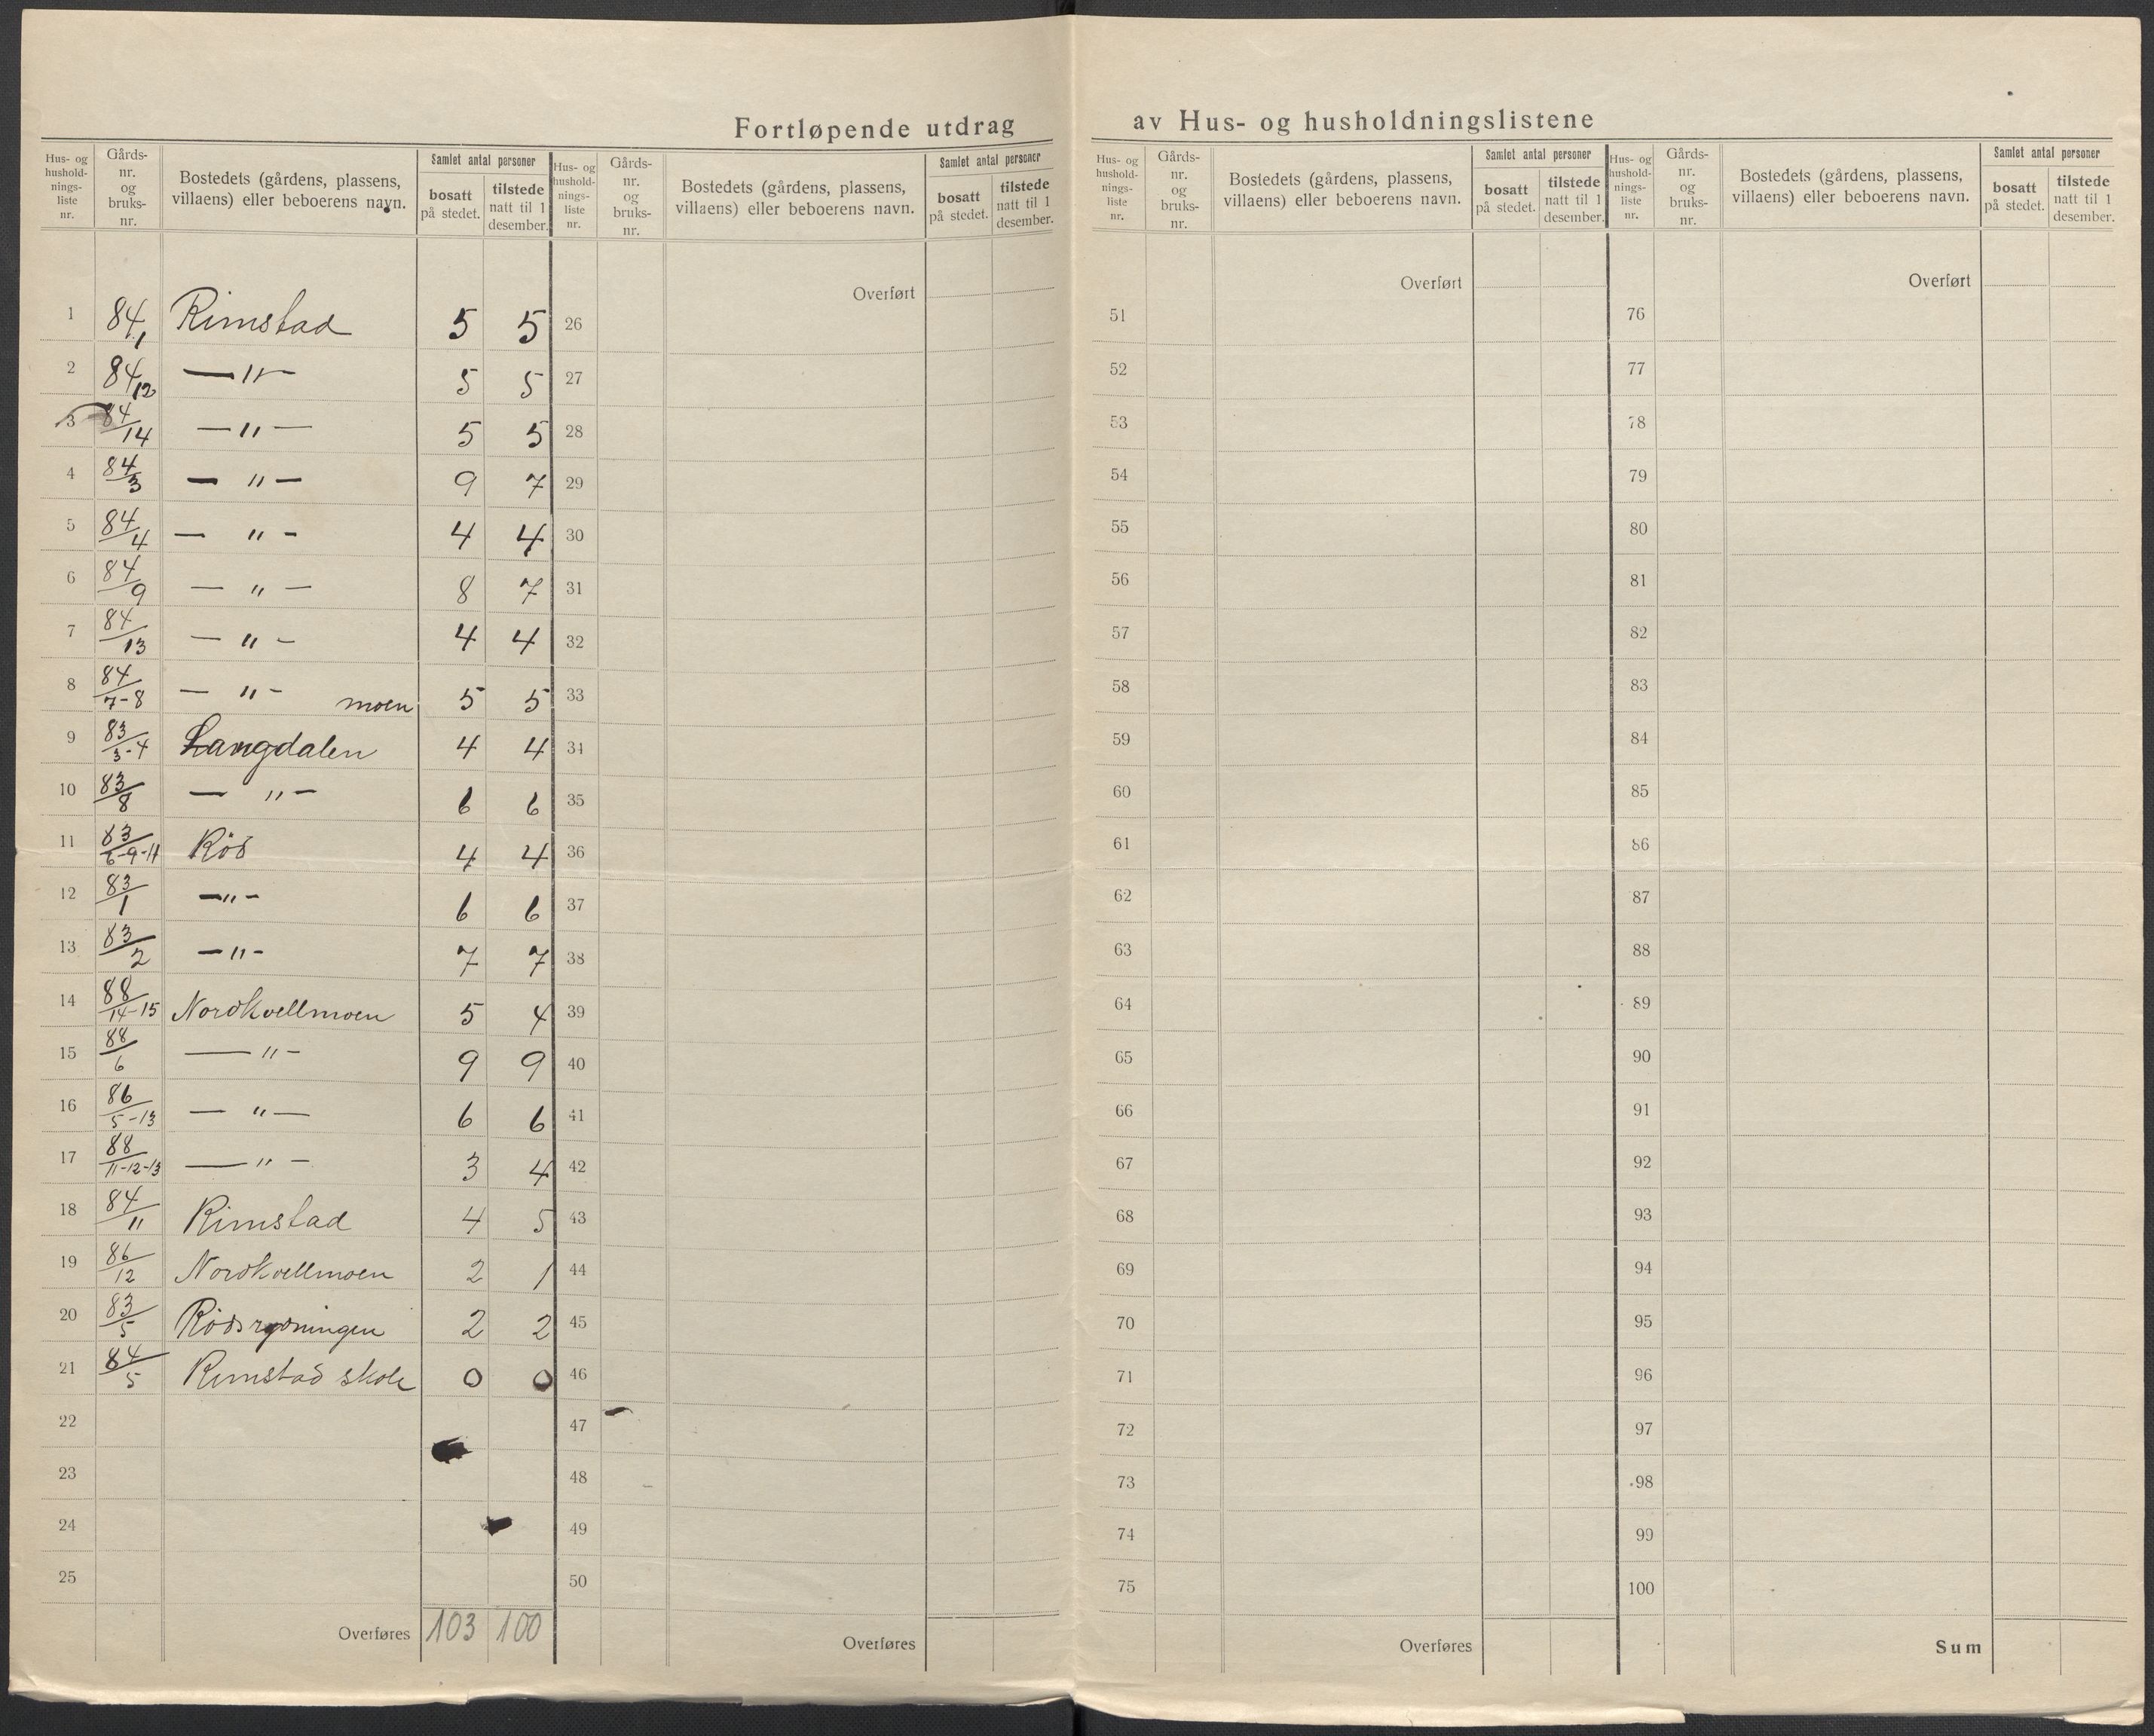 Fortløpende utdrag av Hus- og husholdningslistene
Hus- og hushold- nings- liste nr. Gårds- nr. og bruks- nr. Bostedets (gårdens, plassens, villaens) eller beboerens navn. Samlet antal personer bosatt på stedet. tilstede natt til 1 desember.
1 84/1 Rimstad 5 5
2 84/12 —"— 5 5
3 84/14 —"— 5 5
4 84/3 — " — 9 7
5 84/4 — " - 4 4
6 84/9 — " — 8 7
7 84/13 — " - 4 4
8 84/7-8 — " - moen 5 5
9 83/3-4 Langdalen 4 4
10 83/8 — " — 6 6
11 83/6-9-11 Röd 4 4
12 83/1 —"- 6 6
13 83/2 —"- 7 7
14 88/14-15 Nordkvellmoen 5 4
15 88/6 — " - 9 9
16 86/5-13 — " — 6 6
17 88/11-12-13 — " - 3 4
18 84/11 Rimstad 4 5
19 86/12 Nordkvellmoen 2 1
20 83/5 Rödsrydningen 2 2
21 84/5 Rimstad skole 0 0
22
23
24
25
Overføres 103 100
Hus- og hushold- nings- liste nr. Gårds- nr. og bruks- nr. Bostedets (gårdens, plassens, villaens) eller beboerens navn. Samlet antal personer bosatt på stedet. tilstede natt til 1 desember.
Overført
26
27
28
29
30
31
32
33
34
35
36
37
38
39
40
41
42
43
44
45
46
47
48
49
50
Overføres
Hus- og hushold- nings- liste nr. Gårds- nr. og bruks- nr. Bostedets (gårdens, plassens, villaens) eller beboerens navn. Samlet antal personer bosatt på stedet. tilstede natt til 1 desember.
Overført
51
52
53
54
55
56
57
58
59
60
61
62
63
64
65
66
67
68
69
70
71
72
73
74
75
Overføres
Hus- og hushold- nings- liste nr. Gårds- nr. og bruks- nr. Bostedets (gårdens, plassens, villaens) eller beboerens navn. Samlet antal personer bosatt på stedet. tilstede natt til 1 desember.
Overført
76
77
78
79
80
81
82
83
84
85
86
87
88
89
90
91
92
93
94
95
96
97
98
99
100
Sum